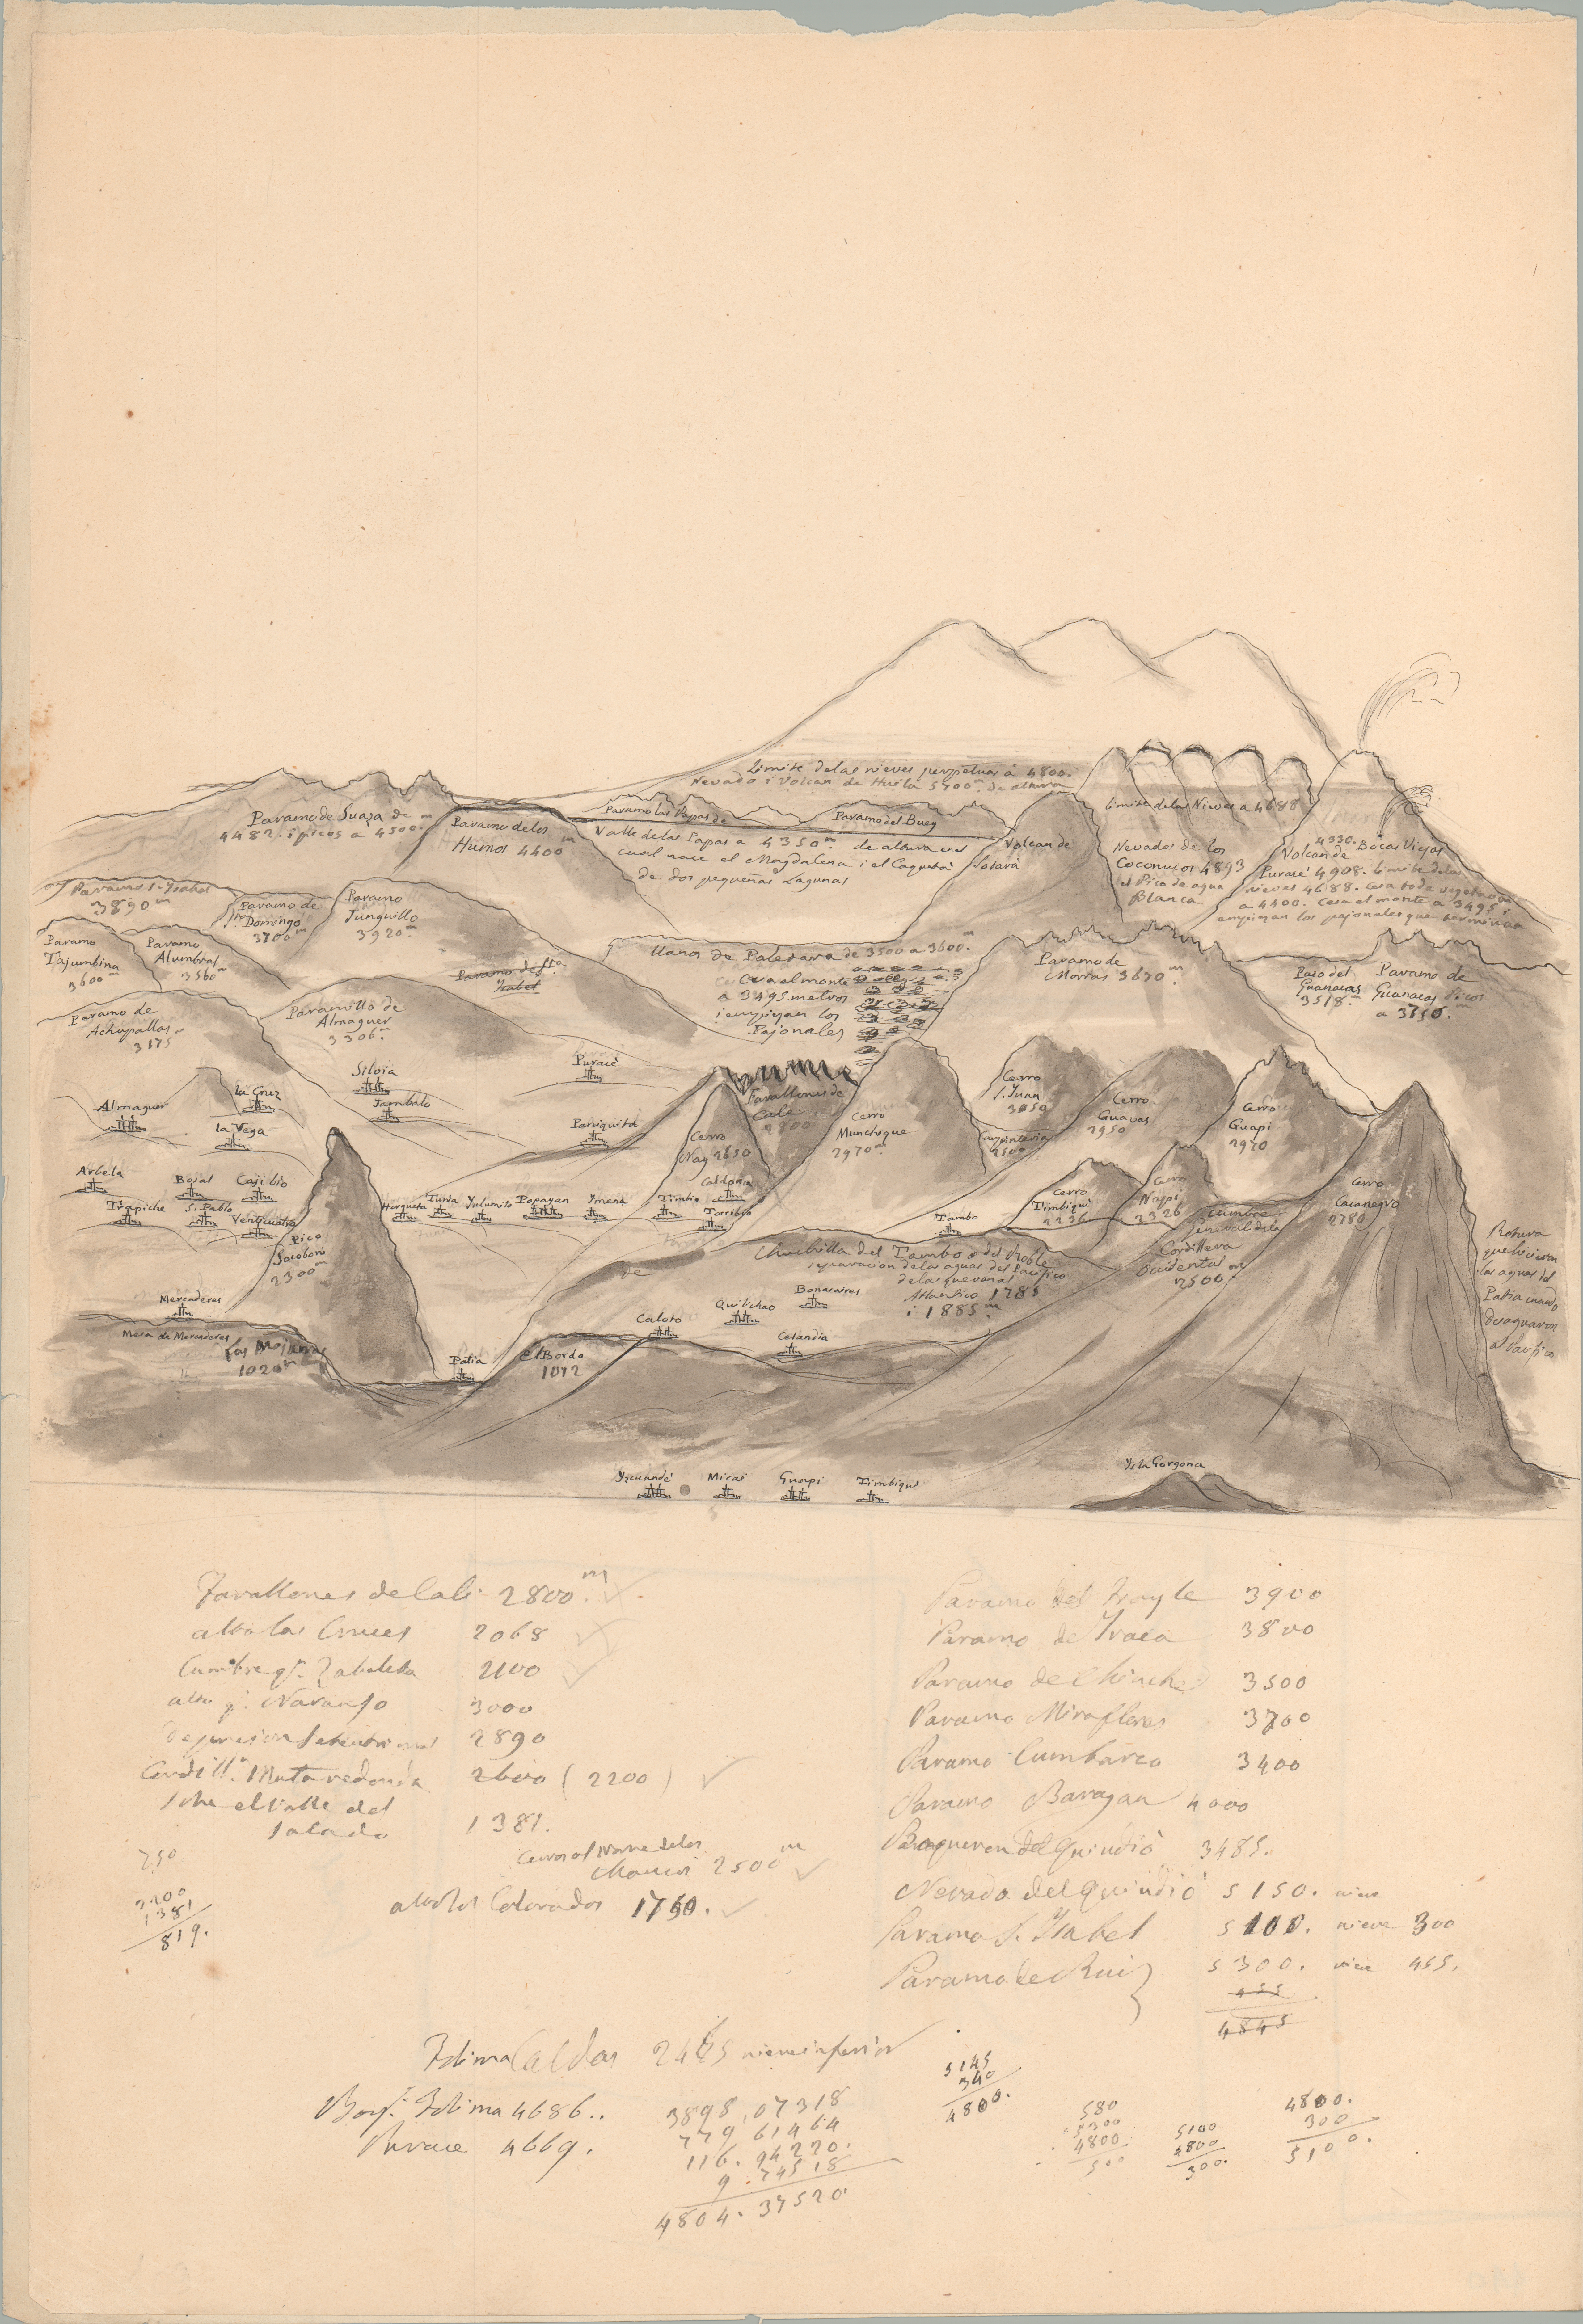 Limite de las nieves perpetuas à 4800.
Nevado i Volcan de Huila 5700 m. de altura
Paramo de Suaza de
4482. i picos a 4500. m
Paramo de los
Humos 4400 m
Paramo las Papas de
Paramo del Buey
Valle de las Papas a 4350 m. de altura en el
cual nace el Magdalena i el Caquetá
de dos pequeñas Lagunas
Volcan de
Sotará
Limite de las Nieves a 4688
Nevados de los
Coconucos 4893
el Pico de agua
Blanca
4330. Bocas Viejas
Volcan de
Puracé 4908. Limite de las
nieves 4688. Cesa toda vegetacion
a 4400. Cesa el monte a 3495 i
empiezan los pajonales que terminan
Paramo S. Ysabel
3890 m
Paramo de
S. Domingo
3700 m
Paramo
Junguillo
3920 m.
Paramo
Tajumbina
3600 m
Paramo
Alumbral
3560 m
Paramo de Sta
Ysabel
Llano de Paletara de 3500 a 3600. m
Cesa el monte
a 3495 metros
i empiezan los
Pajonales
Paramo de
Moras 3670 m.
Paso del
Guanacas
3518. m
Paramo de
Guanacas Picos
a 3750. m
Paramo de
Achupallas
3175
Paramillo de
Almaguer
3306. m
Silvia
Jambalo
Puracé
Paniquitá
Almaguer
la Cruz
la Vega
Farallones de
Cali
2800
Cerro
Munchique
2970 m
Cerro
S. Juan
3050
Cerro
Guavas
2950
Cerro
Guapi
2970
Cerro
Nay 2650
Carpinteria
2500
Arbela
Bojal
Cajibio
Trapiche
S. Pablo
Horqueta
Tunia
Yulumito
Popayan
Ymená
Timbio
Caldona
Torribio
Tambo
Cerro
Timbiqui
2236
Cerro
Napi
2326
Cerro
Cacanegro
2780
Cumbre
General de la
Cordillera
Occidental
2500. m
Pico
Socoboni
2300 m
Cuchilla del Tambo o del Roble
separacion de las aguas del Pacifico
de las que van al
Atlantico 1785
i 1885. m
Rotura
que hicieron
las aguas del
Patia cuando
desaguaron
al Pacifico
Mercaderes
Mesa de Mercaderes
Los Mojarras
1020 m
Patia
El Bordo
1072
Caloto
Quilichao
Buenosaires
Celandia
Yscuandé
Micai
Guapi
Timbiqui
Ysla Gorgona
Farallones de Cali 2800. m
alto las Cruces 2068
Cumbre qe. Zabaleta 2100
alto Naranjo 3000
2890
Cordilla. Mata redonda 2600 (2200)
sobre el Valle del
Salado 1381.
2500 m
750
2200
1381
819.
alto los Colorados 1760.
Paramo del Frayle 3900
Paramo de Yraca 3800
Paramo de Chinche 3500
Paramo Miraflores 3700
Paramo Cumbarco 3400
Paramo Baragan 4000
Boqueron del Quindiò 3485.
Nevado del Quindiò 5150. nieve
Paramo S. Ysabel 5100. nieve 300
Paramo de Ruiz 5300. nieve 455.
455
4845
Tolima Caldas 2465 nieve inferior
Bousst. Tolima 4686..
Purace 4669.
3898,07318
779 61464
116. 94220.
9.74518
4804.37520
5145
340
4800.
580
5300
4800.
500
5100
4800
300.
4800.
300
5100.